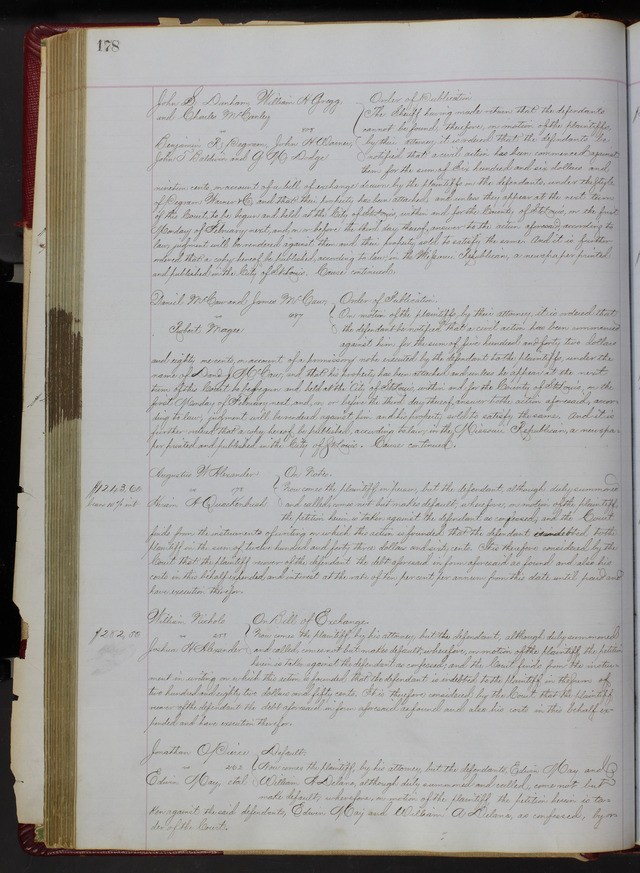 178
John S. Dunham, William H Gregg, Order of Publication
and Charles McCauley The Sheriff having made return that the defendants
cannot be found, therefore, on motion of the plaintiffs,
Benjamin R. Pegram, John H Warner, by their attorney, it is ordered that the defendants be
John T Baldwin and G M Dodge notified that a civil action has been commenced against
them for the sum of six hundred and six dollars and
cents, on account of a bill of exchange drawn by the plaintiffs on the defendants, under the style
of Pegram Warner & Co, and that their property has been attached; and unless they appear at the next term
of this Court, to be begun and held at the City of St Louis, within and for the County of St Louis, on the first
Monday of February next, and on or before the third day thereof, answer to the action aforesaid, according to
law, judgment will be rendered against them and their property sold to satisfy the same. And it is further
ordered that a copy hereof be published, according to law, in the Missouri Republican, a newspaper printed
and published in the City of St Louis. Cause continued.
Daniel McCaw and James McCaw, Order of Publication.
On motion of the plaintiffs, by their attorney, it is ordered that
Robert Magee the defendant be notified that a civil action has been commenced
against him for the sum of five hundred and forty two dollars
and eighty cents, on account of a promissory note executed by the defendant to the plaintiffs, under the
name of D and J McCaw, and that his property has been attached and unless he appear at the next
term of this Court, to be begun and held at the City of St Louis, within and for the County of St Louis, on the
first Monday of February next, and, on or before the third day thereof, answer to the action aforesaid, accor-
ding to law, judgment will be rendered against him and his property sold to satisfy the same. And it is
further ordered that a copy hereof be published, according to law, in the Missouri Republican, a newspa-
per printed and published in the City of St Louis. Cause continued.
Augustus W Alexander On Note.
$1243,60 Now comes the plaintiff in person, but the defendant, although duly summoned
Hiram H Quackenbush and called, comes not but makes default, wherefore, on motion of the plaintiff,
the petition herein is taken against the defendant as confessed, and the Court
finds from the instrument of writing on which the action is founded that the defendant indebted to the
plaintiff in the sum of twelve hundred and forty three dollars and sixty cents. It is therefore considered by the
Court that the plaintiff recover of the defendant the debt aforesaid in form aforesaid as found and also his
costs in this behalf expended, and interest at the rate of ten per cent per annum from this date until paid and
have execution therefor.
William Nichols On Bill of Exchange.
$282,50 Now comes the plaintiff, by his attorney, but the defendant, although duly summoned
Joshua H Alexander and called, comes not but makes default, wherefore, on motion of the plaintiff, the petition
herein is taken against the defendant as confessed, and the Court finds from the instru-
ment in writing on which the action is founded that the defendant is indebted to the plaintiff in the sum of
two hundred and eighty two dollars and fifty cents. It is therefore considered by the Court that the plaintiff
recover of the defendant the debt aforesaid in form aforesaid as found and also his costs in this behalf ex-
pended and have execution therefor.
Jonathan O Pierce Default.
Now comes the plaintiff, by his attorney, but the defendants, Edwin May and
Edwin May et al William A Delano, although duly summoned and called, come not but
make default, wherefore, on motion of the plaintiff the petition herein is ta-
ken against the said defendants, Edwin May and William A Delano, as confessed, by or-
der of the Court.